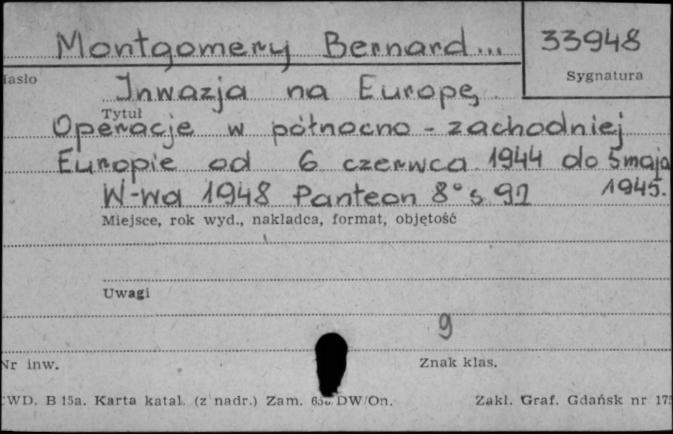 Montgomery Bernard... 33948
Hasło Sygnatura
Inwazja na Europę
Tytuł
Operacje w północno-zachodniej
Europie od 6 czerwca 1944 do 5 maja
W-wa 1948 Panteon 8° s. 92 1945.
Miejsce, rok wyd., nakładca, format, objętość
Uwagi
9
Nr inw. Znak klas.
CWD. B 15a. Karta katal. (z nadr.) Zam. DW/On. Zakł. Graf. Gdańsk nr 175